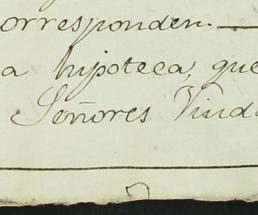 orresponden.
a hipoteca, que
Señores Viud